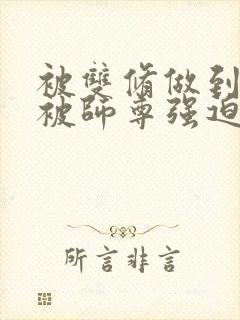 被雙脩做到
被師尊强迫
所言非言